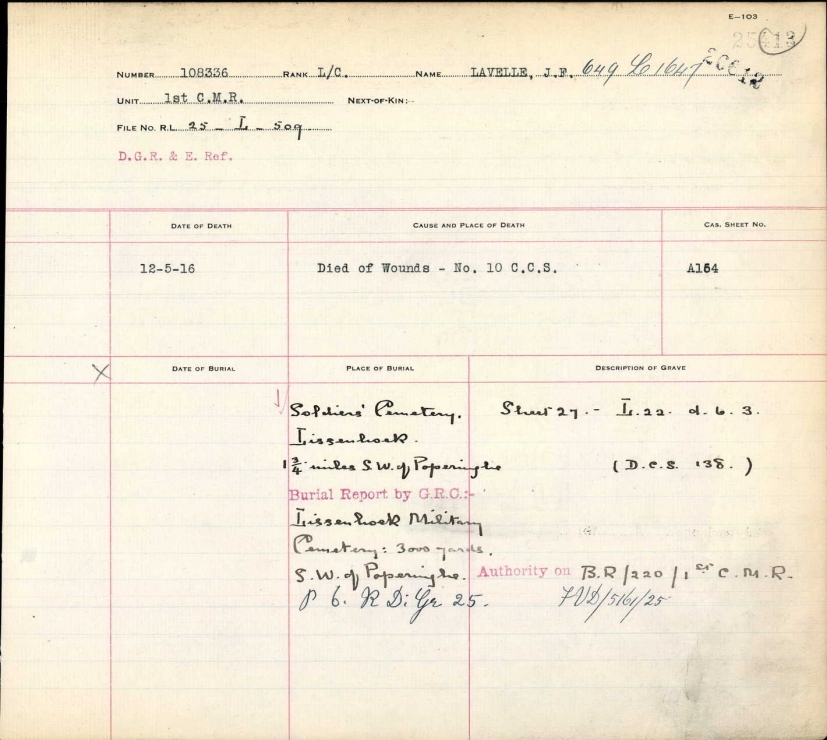 E-103
NUMBER 108336 RANK L/C. NAME LAVELLE, J.F. 649 L 1647
UNIT 1st C.M.R. NEXT-OF-KIN:-
FILE NO. R.L. 25 - L - 509
D.G.R. & E. Ref.
DATE OF DEATH CAUSE AND PLACE OF DEATH CAS. SHEET NO.
12-5-16 Died of Wounds - No. 10 C.C.S. A164
X DATE OF BURIAL PLACE OF BURIAL DESCRIPTION OF GRAVE
Soldiers' Cemetery, Sheet 27. - L. 22. d. 6. 3.
Lissenhoek.
1 3/4 miles S.W. of Poperinghe (D.C.S. 138.)
Burial Report by G.R.C:-
Lissenhoek Military
Cemetery: 3000 yards.
S.W. of Poperinghe. Authority on B.R/220/1st C.M.R.
P 6. R D. Gr 25. FVD/5161/25